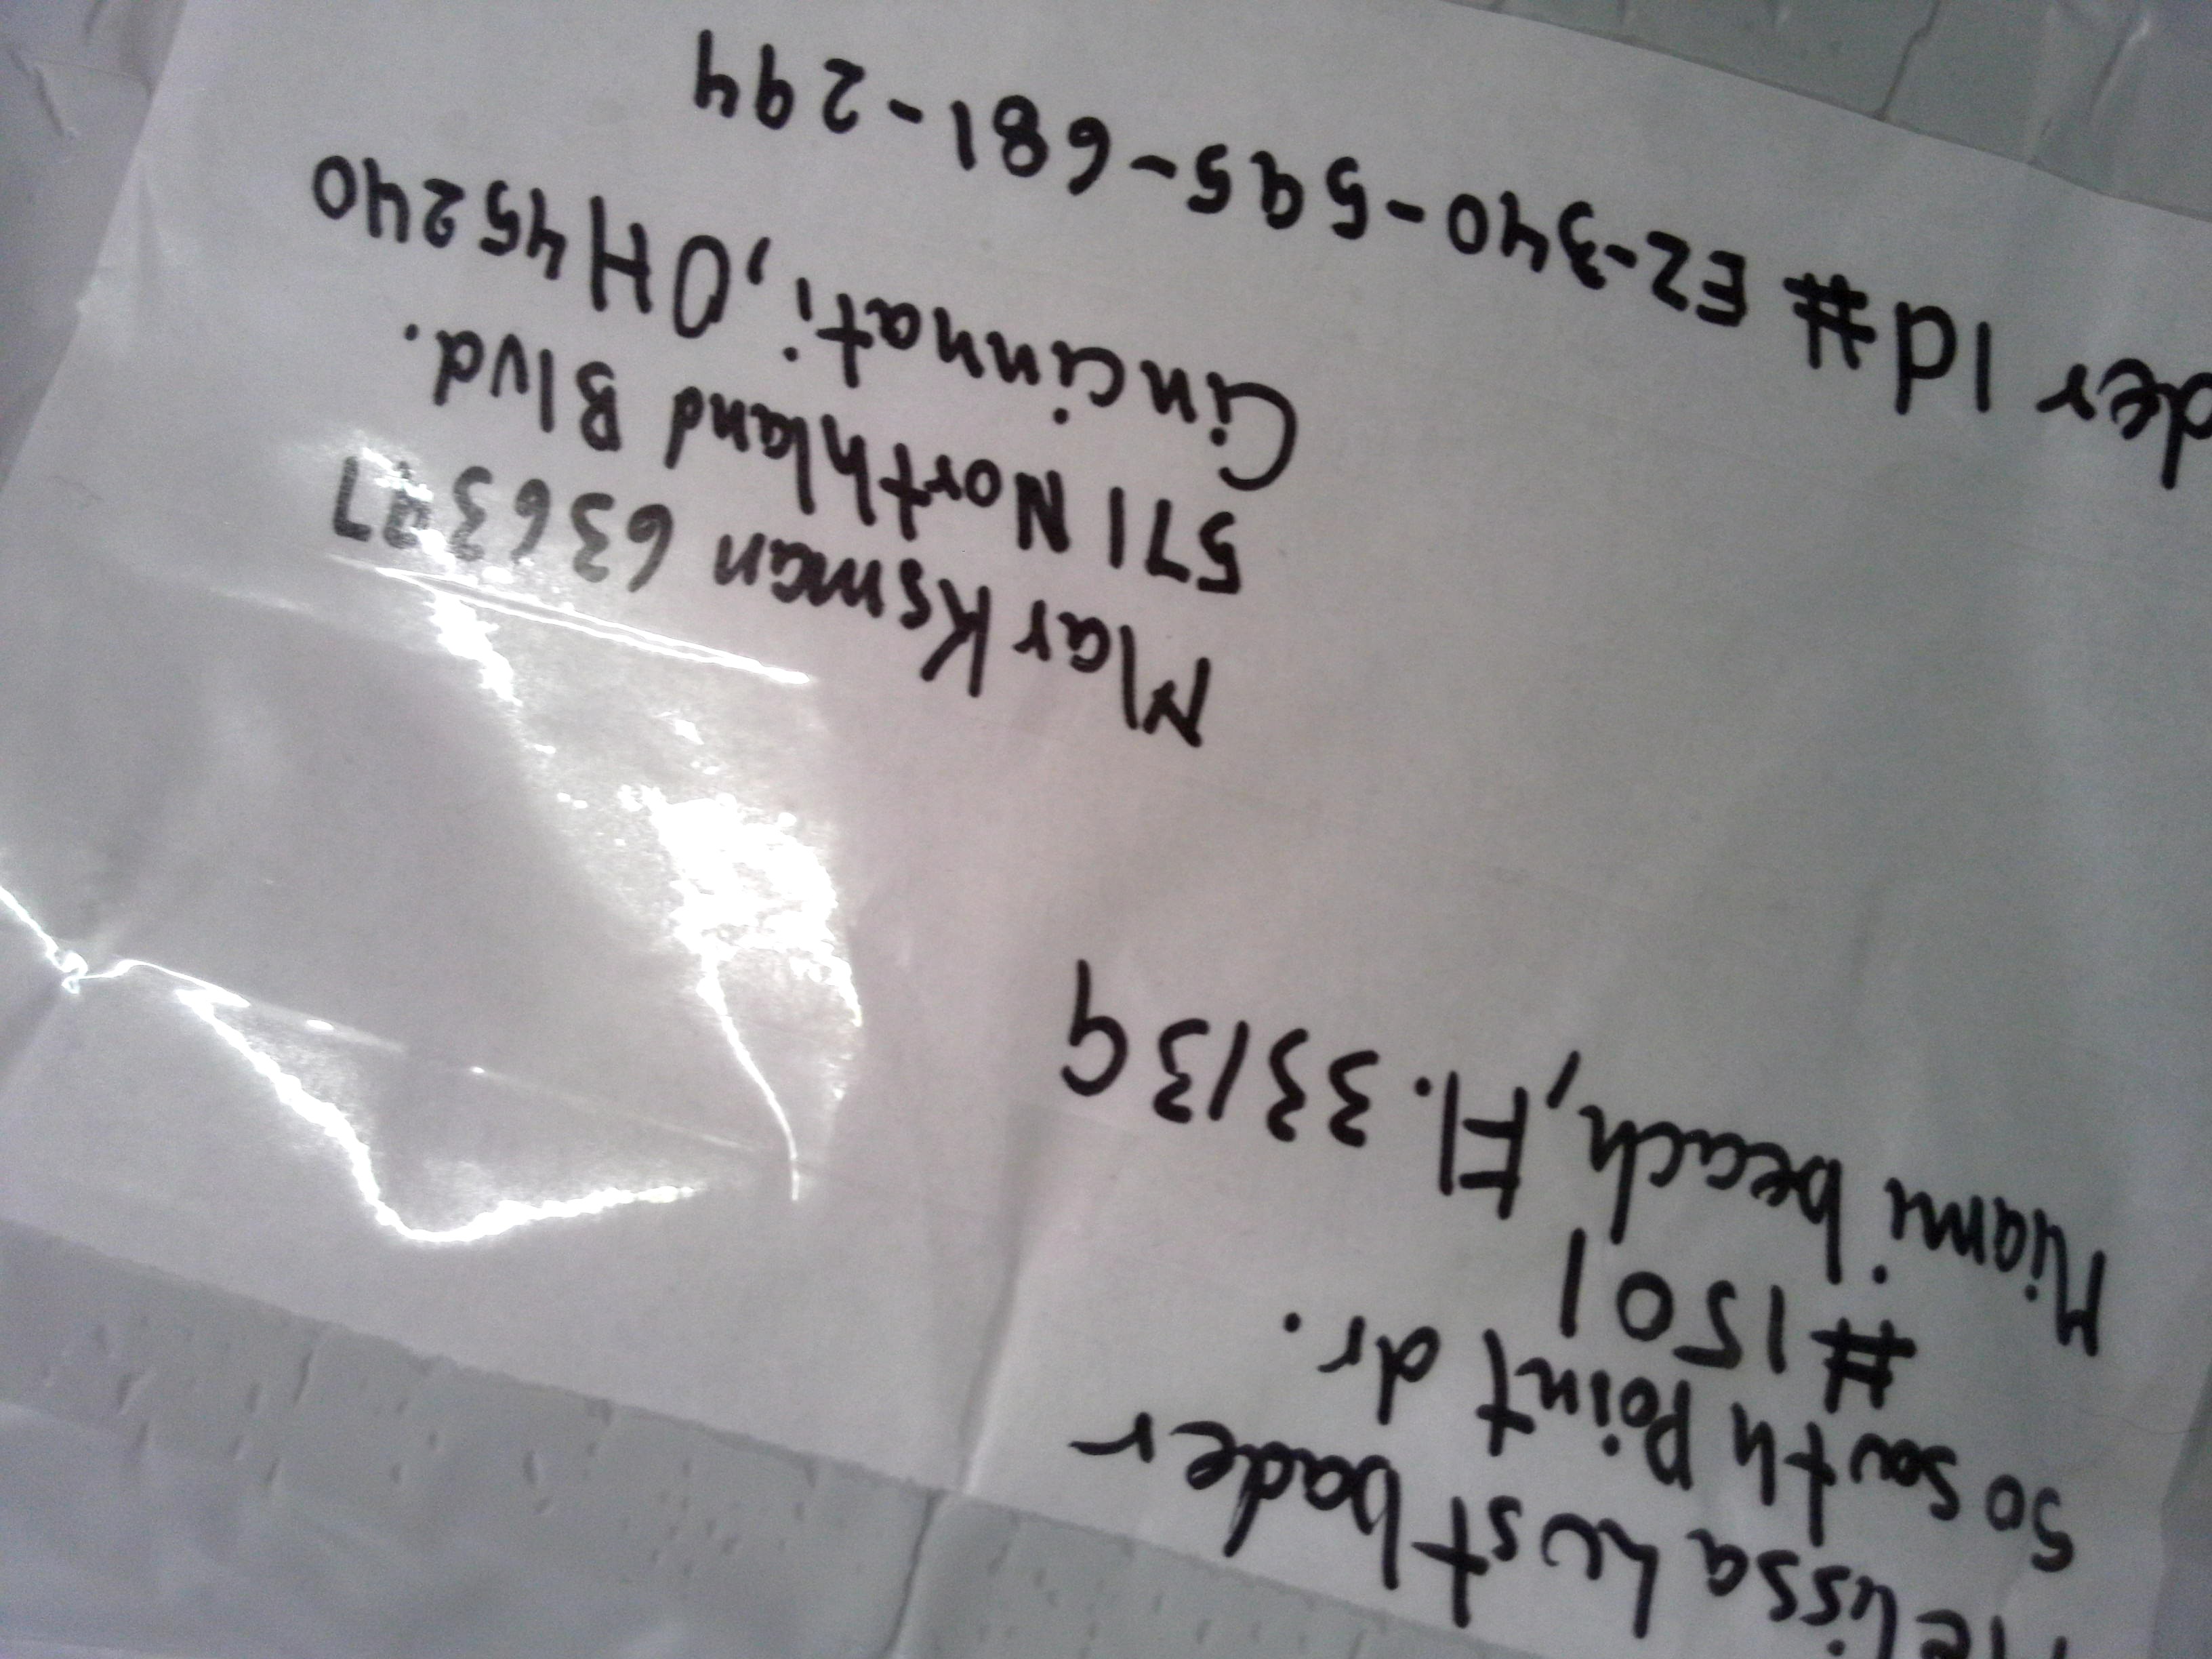 Melissa Lust bader
50 South Point dr.
#1501
Miami beach, Fl. 33139
Marksman 636397
571 Northland Blvd.
Cincinnati, OH 45240
der Id # E2-340-595-681-294